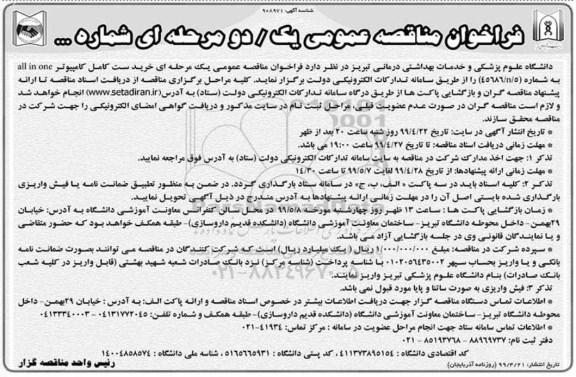 شناسه آگهی: ۹۰۸۹۷۱
فراخوان مناقصه عمومی یک / دو مرحله ای شماره ...
دانشگاه علوم پزشکی و خدمات بهداشتی درمانی تبریز در نظر دارد فراخوان مناقصه عمومی یک مرحله ای خرید ست کامل کامپیوتر all in one
به شماره (۴۵۶۸۶/n/۵) را از طریق سامانه تدارکات الکترونیکی دولت برگزار نمایند. کلیه مراحل برگزاری مناقصه از دریافت اسناد مناقصه تا ارائه
پیشنهاد مناقصه گران و بازگشایی پاکت ها از طریق درگاه سامانه تدارکات الکترونیکی دولت (ستاد) به آدرس (www.setadiran.ir) انجام خواهد شد
و لازم است مناقصه گران در صورت عدم عضویت قبلی، مراحل ثبت نام در سایت مذکور و دریافت گواهی امضای الکترونیکی را جهت شرکت در
مناقصه محقق سازند.
* تاریخ انتشار آگهی در سایت: تاریخ ۹۹/۴/۲۲ روز شنبه ساعت ۲۰ بعد از ظهر
* مهلت زمانی دریافت اسناد مناقصه: تا تاریخ ۹۹/۴/۲۷ ساعت ۱۹:۰۰ می باشد.
تذکر ۱: جهت اخذ مدارک شرکت در مناقصه به سایت سامانه تدارکات الکترونیکی دولت (ستاد) به آدرس فوق مراجعه نمایید.
مهلت زمانی ارائه پیشنهادها: از تاریخ ۹۹/۴/۲۸ لغایت ۹۹/۵/۷ تا ساعت ۱۴/۳۰
تذکر ۲: کلیه اسناد باید در سه پاکت « الف، ب، ج» در سامانه ستاد بارگذاری گردد، در ضمن به منظور تطبیق ضمانت نامه یا فیش واریزی
بارگذاری شده بایستی اصل آن را در مهلت زمانی ارائه پیشنهادها به آدرس مندرج در ذیل آگهی تحویل نمایید.
* زمان بازگشایی پاکت ها : ساعت ۱۳ ظهر روز چهارشنبه مورخه ۹۹/۵/۸ در محل سالن کنفرانس معاونت آموزشی دانشگاه به آدرس: خیابان
۲۹بهمن- داخل محوطه دانشگاه تبریز- ساختمان معاونت آموزشی دانشگاه (دانشکده قدیم داروسازی)- طبقه همکف خواهد بود که حضور متقاضی
و یا نمایندگان قانونی وی در جلسه بازگشایی آزاد می باشد.
* سپرده شرکت در مناقصه: مبلغ ۱/۰۰۰/۰۰۰/۰۰۰ ریال (یک میلیارد ریال) است که شرکت کنندگان در مناقصه می توانند بصورت ضمانت نامه
بانکی و یا واریز بحساب سپهر ۰۱۰۲۰۵۶۴۳۵۰۰۲ با شناسه پرداخت (شناسه مرکز) نزد بانک صادرات شعبه شهید بهشتی (قابل واریز در کلیه شعب
بانک صادرات) بنام دانشگاه علوم پزشکی تبریز واریز نمایند.
تذکر ۳: فیش واریزی به صورت ساتنا و پایا مورد قبول نمی باشد.
* اطلاعات تماس دستگاه مناقصه گزار جهت دریافت اطلاعات بیشتر در خصوص اسناد مناقصه و ارائه پاکت الف: به آدرس : خیابان ۲۹بهمن- داخل
محوطه دانشگاه تبریز- ساختمان معاونت آموزشی دانشگاه (دانشکده قدیم داروسازی)- طبقه همکف و شماره تلفن: ۰۴۱۳۱۷۷۲۰۴۵ - ۰۴۱۳۳۳۴۰۰۰۳
* اطلاعات تماس سامانه ستاد جهت انجام مراحل عضویت در سامانه : مرکز تماس: ۴۱۹۳۴-۰۲۱
دفتر ثبت نام: ۸۸۹۶۹۷۳۷ - ۸۵۱۹۳۷۶۸ - ۰۲۱
کد اقتصادی دانشگاه : ۴۱۱۳۷۳۸۹۵۱۵۴ ، کد پستی دانشگاه : ۵۱۶۵۶۶۵۹۳۱ ، شناسه ملی دانشگاه : ۱۴۰۰۴۸۵۸۵۷۴
تاریخ انتشار: ۹۹/۴/۲۱ (روزنامه آذربایجان)
رئیس واحد مناقصه گزار